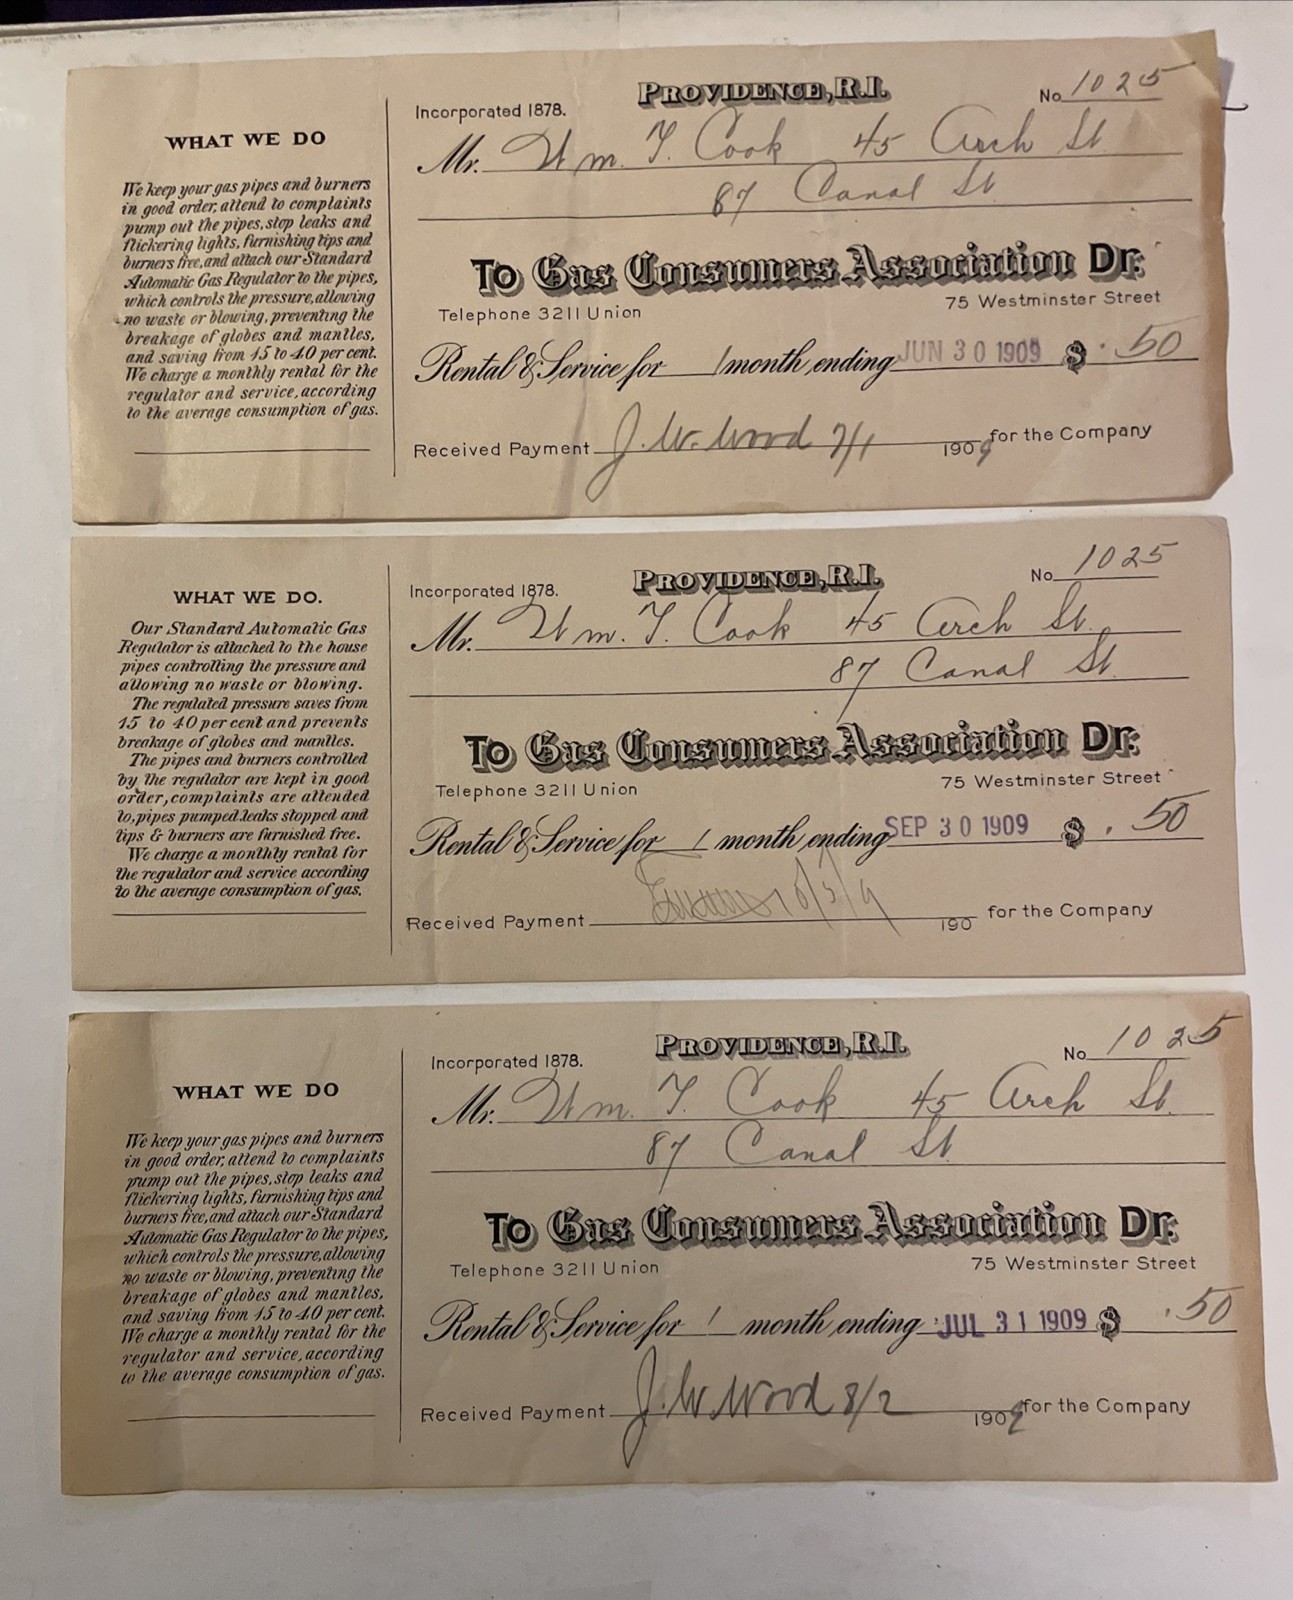 WHAT WE DO
We keep your gas pipes and burners
in good order, attend to complaints
pump out the pipes, stop leaks and
flickering lights, furnishing tips and
burners free, and attach our Standard
Automatic Gas Regulator to the pipes,
which controls the pressure, allowing
no waste or blowing, preventing the
breakage of globes and mantles,
and saving from 15 to 40 per cent.
We charge a monthly rental for the
regulator and service, according
to the average consumption of gas.
Incorporated 1878.
PROVIDENCE, R.I.
No 1025
Mr. Wm. T. Cook 45 Arch St
87 Canal St
To Gas Consumers Association Dr.
Telephone 3211 Union
75 Westminster Street
Rental & Service for 1 month ending JUN 30 1909 $ .50
Received Payment J. W. Wood 7/1 1909 for the Company
WHAT WE DO.
Our Standard Automatic Gas
Regulator is attached to the house
pipes controlling the pressure and
allowing no waste or blowing.
The regulated pressure saves from
15 to 40 per cent and prevents
breakage of globes and mantles.
The pipes and burners controlled
by the regulator are kept in good
order, complaints are attended
to, pipes pumped, leaks stopped and
tips & burners are furnished free.
We charge a monthly rental for
the regulator and service according
to the average consumption of gas.
Incorporated 1878.
PROVIDENCE, R.I.
No 1025
Mr. Wm. T. Cook 45 Arch St.
87 Canal St.
To Gas Consumers Association Dr.
Telephone 3211 Union
75 Westminster Street
Rental & Service for 1 month ending SEP 30 1909 $ .50
Received Payment 190 for the Company
WHAT WE DO
We keep your gas pipes and burners
in good order, attend to complaints
pump out the pipes, stop leaks and
flickering lights, furnishing tips and
burners free, and attach our Standard
Automatic Gas Regulator to the pipes,
which controls the pressure, allowing
no waste or blowing, preventing the
breakage of globes and mantles,
and saving from 15 to 40 per cent.
We charge a monthly rental for the
regulator and service, according
to the average consumption of gas.
Incorporated 1878.
PROVIDENCE, R.I.
No 1025
Mr. Wm. T. Cook 45 Arch St.
87 Canal St
To Gas Consumers Association Dr.
Telephone 3211 Union
75 Westminster Street
Rental & Service for 1 month ending JUL 31 1909 $ .50
Received Payment J. W. Wood 8/2 1909 for the Company